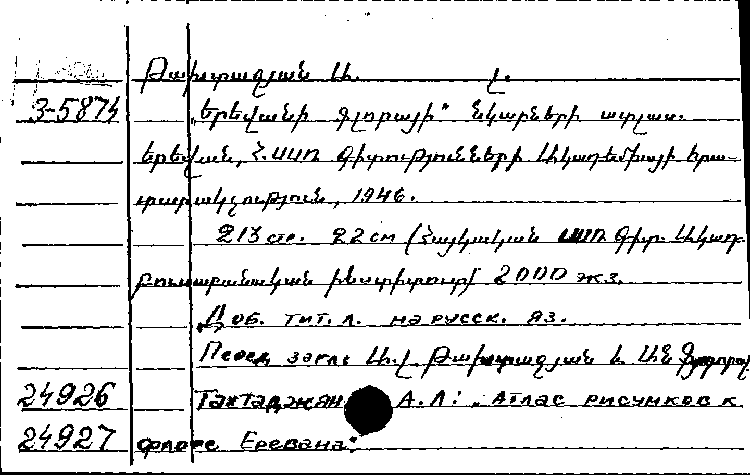 Թախտաջյան Ա. Լ.
3-5874 „Երեվանի Ֆլորայի“ նկարների ատլաս.
Երեվան, Հ.ՍՍՌ Գիտությունների Ակադեմիայի հրա-
տարակչություն, 1946.
213 стр. 22 см (Հայկական ՍՍՌ Գիտ. Ակադ.
բուսաբանական ինստիտուտ) 2000 экз.
Доб. тит. л. на русск. яз.
Перед загл: Ա.Լ. Թախտաջյան և Ան.
24926 Тахтаджян А.Л: „Атлас рисунков к
24927 флоре Еревана: